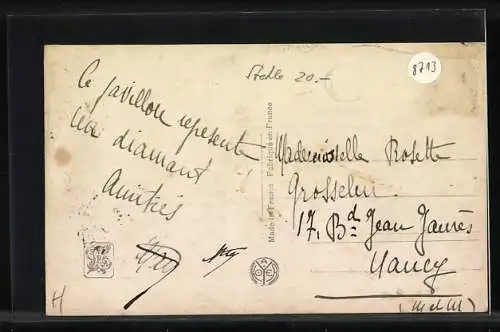 Stelle 20.-
8713
Ce pavillon represente
un diamant
Amitiés
Made in France Fabriqué en France
Mademoiselle Rosette
Grosselin
17, Bd Jean Jaurès
Nancy
(M et M)